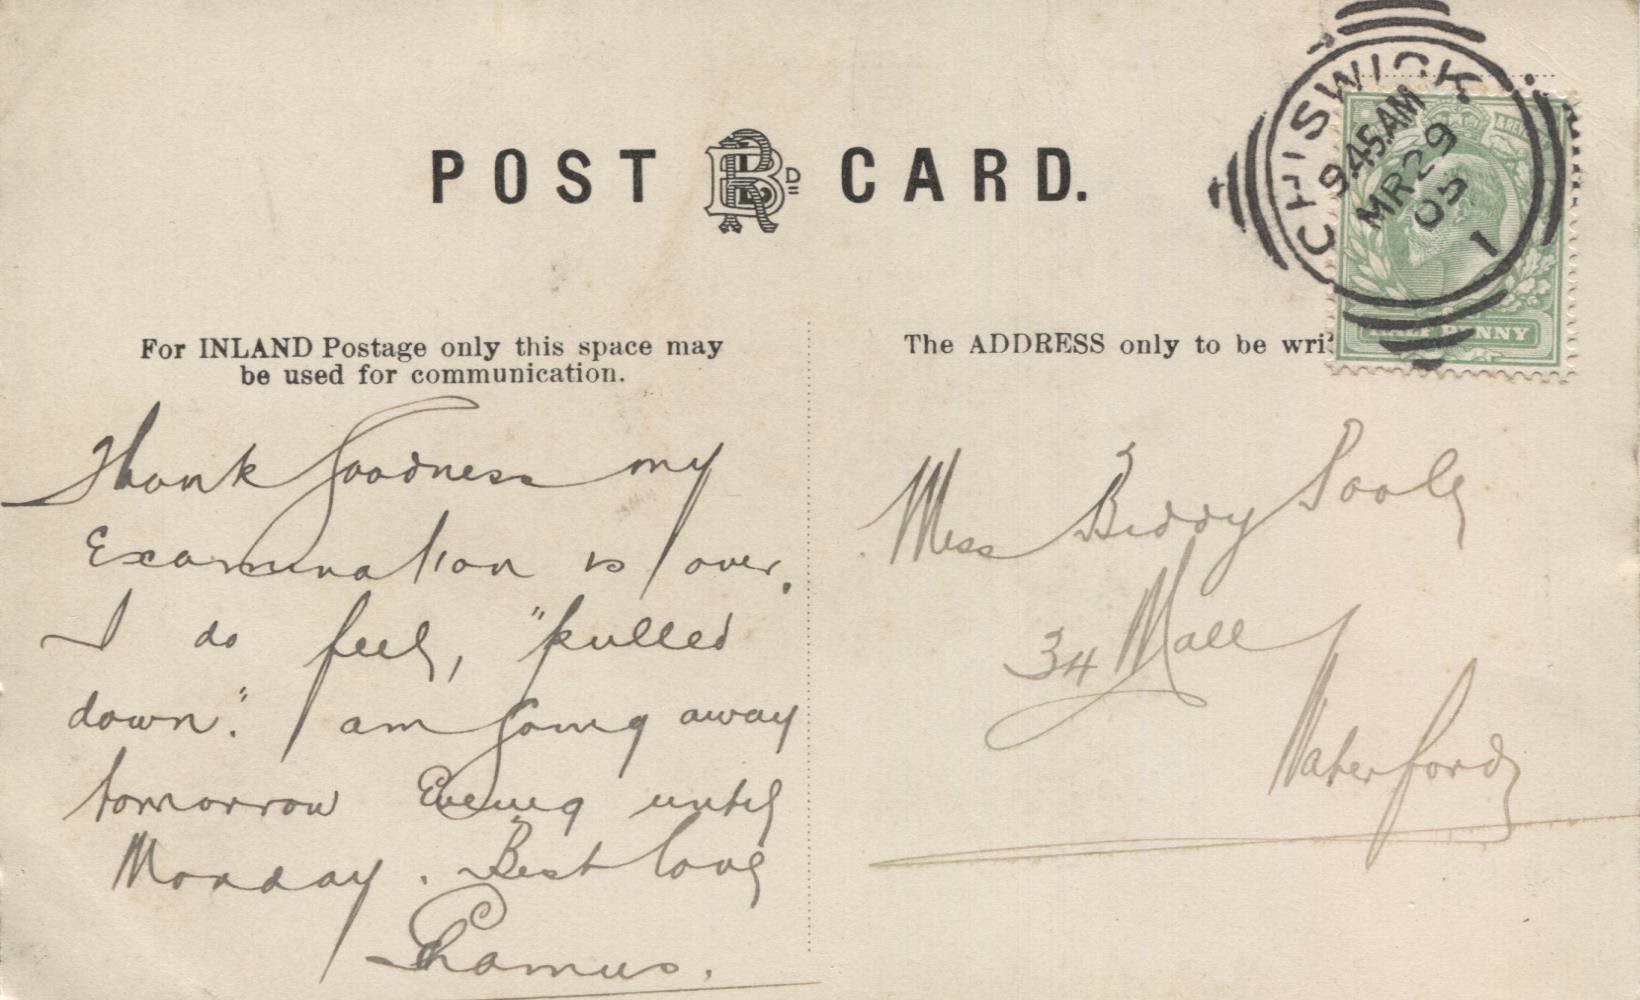 POST CARD.
CHISWICK
9.45AM
MR 29
05
1
HALF PENNY
For INLAND Postage only this space may
be used for communication.
The ADDRESS only to be wri
Thank Goodness my
Examination is over.
I do feel, "pulled
down." I am going away
tomorrow Evening until
Monday. Best love
Shamus.
Miss Biddy Poole
34 Mall
Waterford